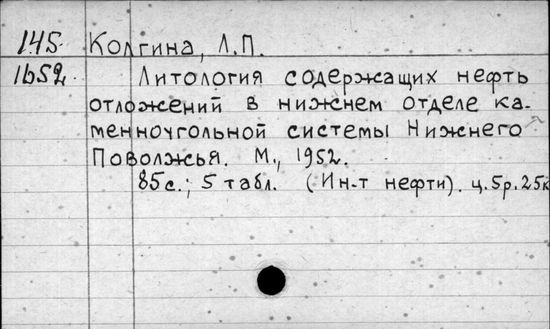 145 Колгина, Л.П.
1652 Литология содержащих нефть
отложений в нижнем отделе ка-
менноугольной системы Нижнего
Поволжья. М., 1952.
85с.; 5 табл. (Ин-т нефти). ц.5р.25к